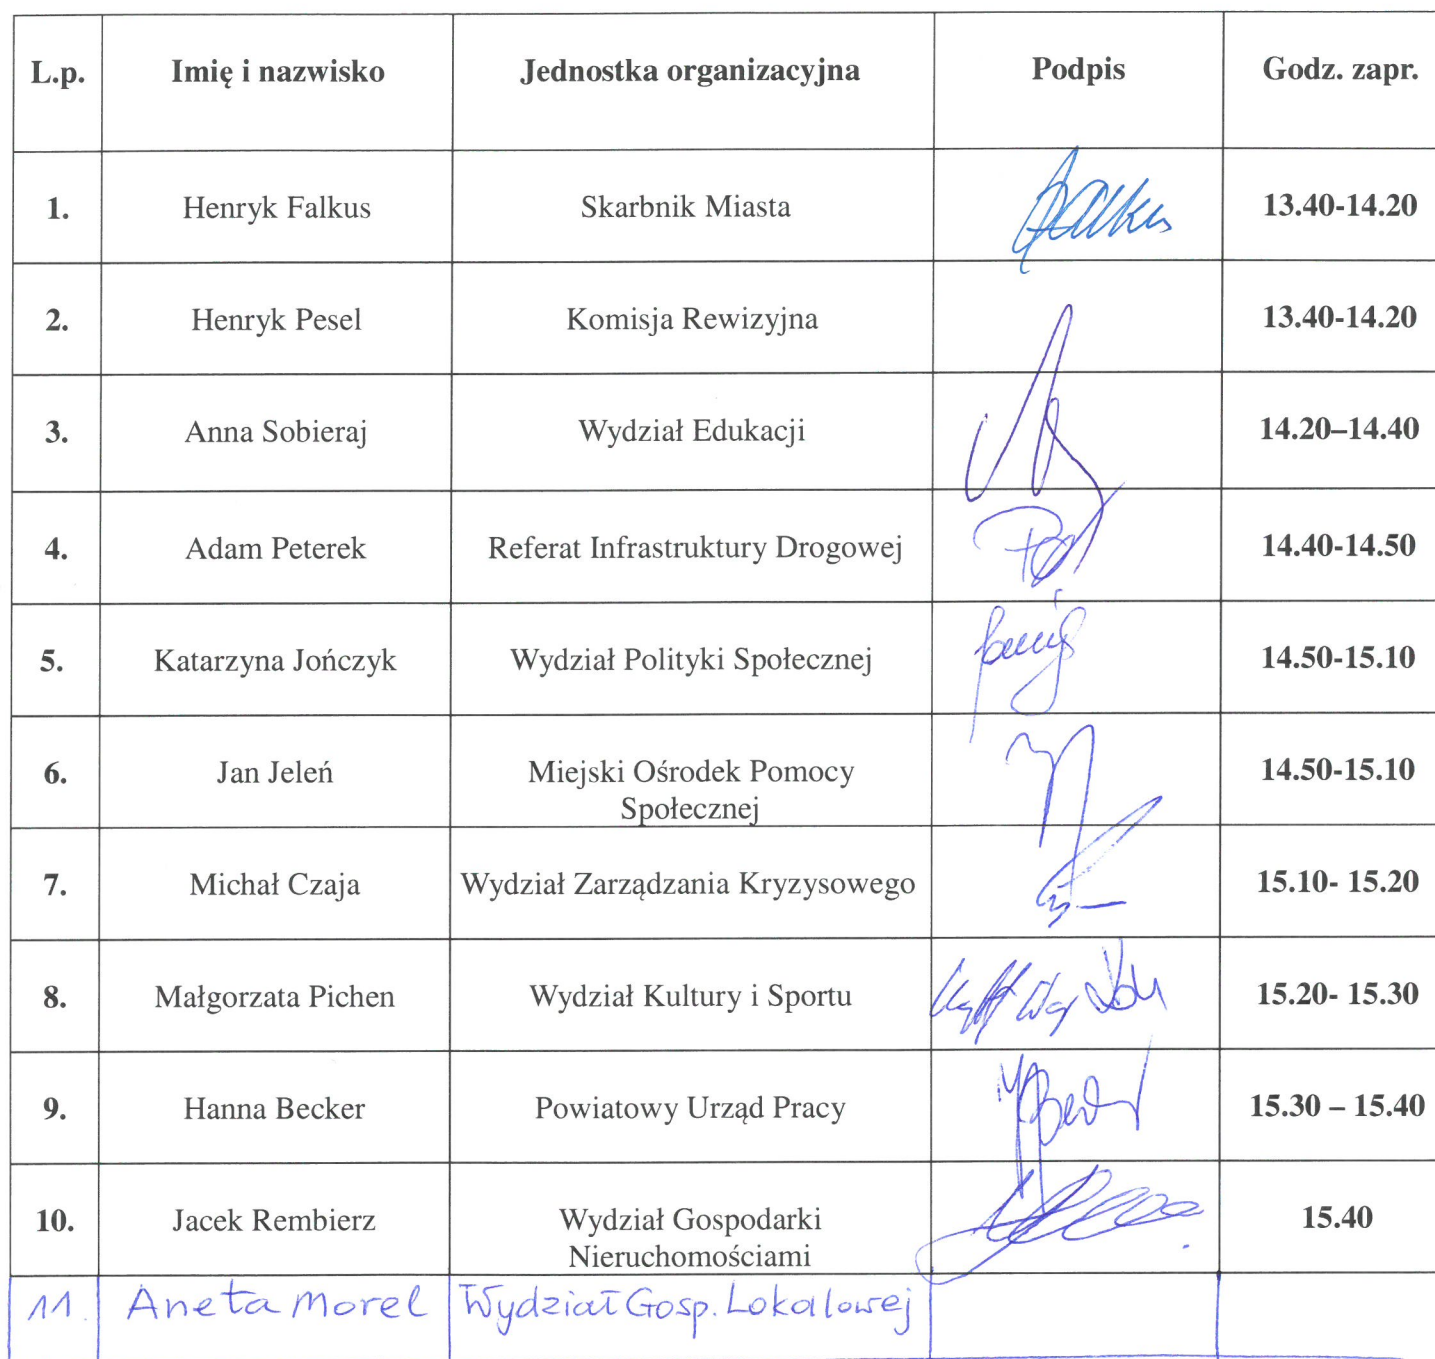 L.p. Imię i nazwisko Jednostka organizacyjna Podpis Godz. zapr.
1. Henryk Falkus Skarbnik Miasta 13.40-14.20
2. Henryk Pesel Komisja Rewizyjna 13.40-14.20
3. Anna Sobieraj Wydział Edukacji 14.20–14.40
4. Adam Peterek Referat Infrastruktury Drogowej 14.40-14.50
5. Katarzyna Jończyk Wydział Polityki Społecznej 14.50-15.10
6. Jan Jeleń Miejski Ośrodek Pomocy 14.50-15.10
Społecznej
7. Michał Czaja Wydział Zarządzania Kryzysowego 15.10- 15.20
8. Małgorzata Pichen Wydział Kultury i Sportu 15.20- 15.30
9. Hanna Becker Powiatowy Urząd Pracy 15.30 – 15.40
10. Jacek Rembierz Wydział Gospodarki 15.40
Nieruchomościami
11. Aneta Morel Wydział Gosp. Lokalowej